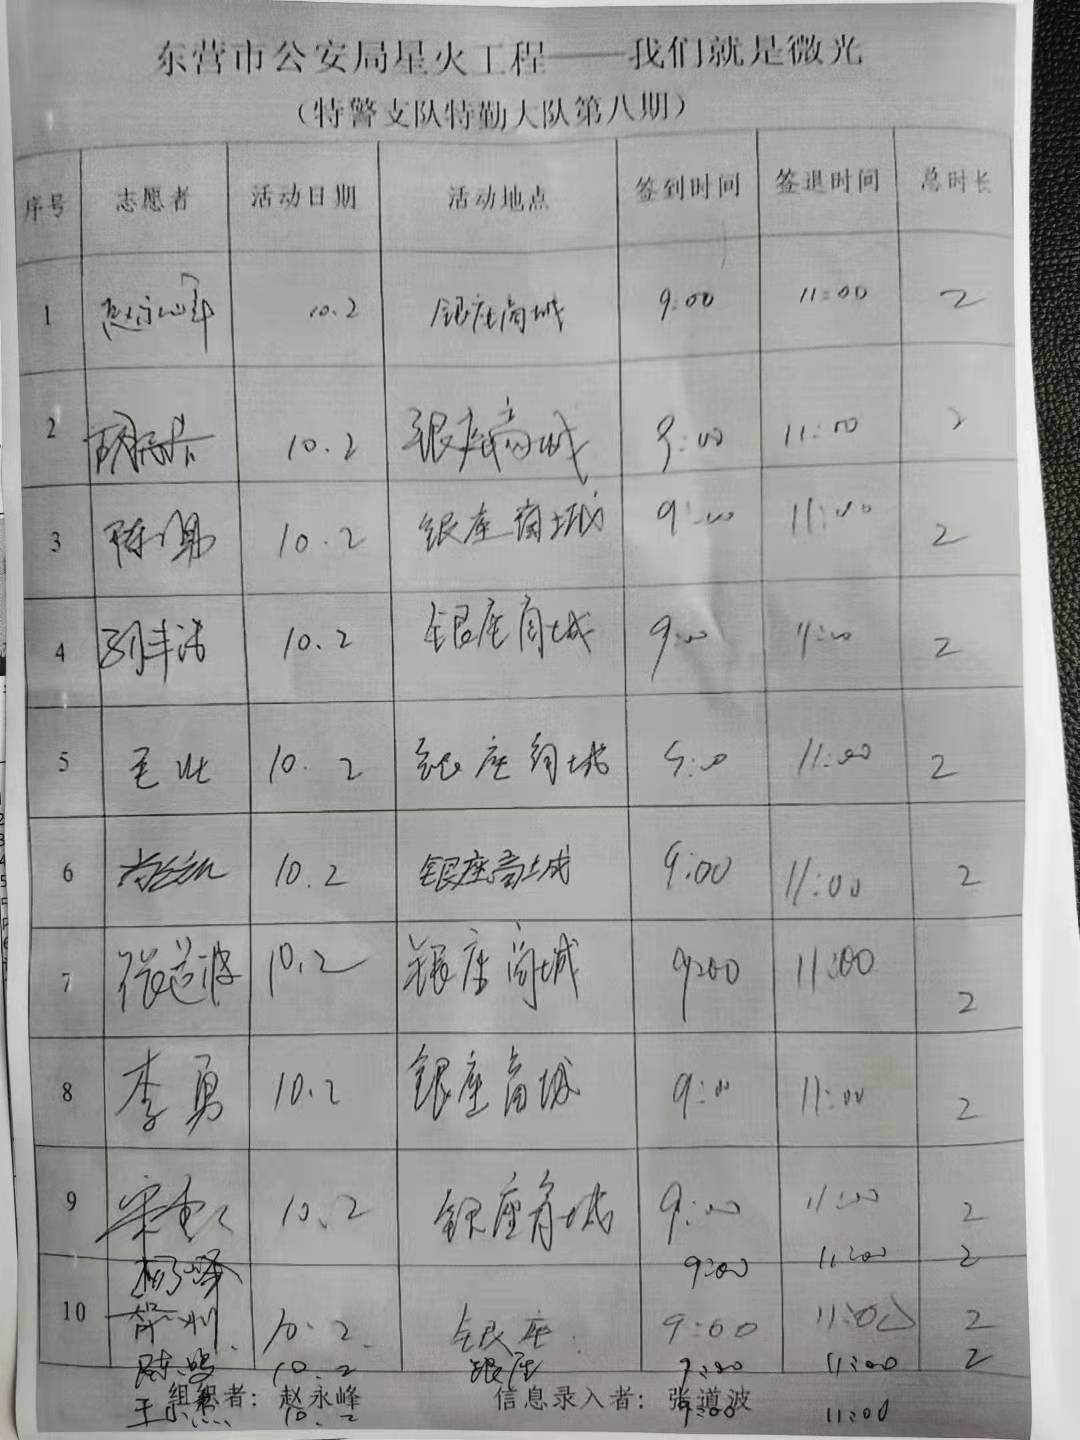 东营市公安局星火工程——我们就是微光
（特警支队特勤大队第八期）
序号 志愿者 活动日期 活动地点 签到时间 签退时间 总时长
1 赵永峰 10.2 银座商城 9:00 11:00 2
2 10.2 银座商城 9:00 11:00 2
3 陈勇 10.2 银座商城 9:00 11:00 2
4 10.2 银座商城 9:00 11:00 2
5 10.2 银座商城 9:00 11:00 2
6 10.2 银座商城 9:00 11:00 2
7 张道波 10.2 银座商城 9:00 11:00 2
8 李勇 10.2 银座商城 9:00 11:00 2
9 10.2 银座商城 9:00 11:00 2
9:00 11:00 2
10 10.2 银座 9:00 11:00 2
10.2 银座 9:00 11:00 2
组织者：赵永峰 信息录入者：张道波
10.2 9:00 11:00